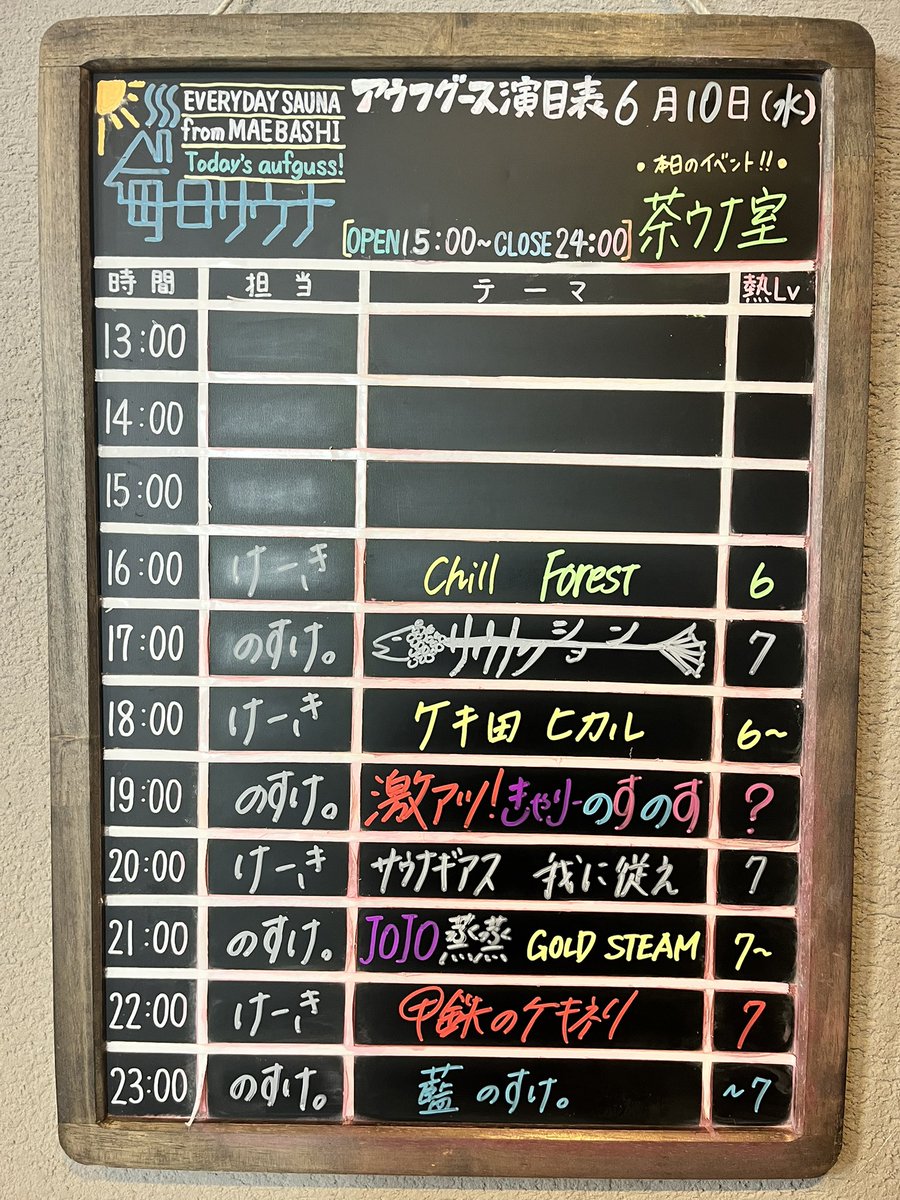 EVERYDAY SAUNA
from MAEBASHI
Today's aufguss!
毎日サウナ
アウフグース演目表 6月10日(水)
•本日のイベント!!•
茶ウナ室
[OPEN 15:00~CLOSE 24:00]
時間 担当 テーマ 熱Lv
13:00
14:00
15:00
16:00 けーき Chill Forest 6
17:00 のすけ。 7
18:00 けーき ケキ田 ヒカル 6~
19:00 のすけ。 激アツ!きゃりーのすのす ?
20:00 けーき サウナギアス 我に従え 7
21:00 のすけ。 JOJO 蒸蒸 GOLD STEAM 7~
22:00 けーき 甲鉄のケキネリ 7
23:00 のすけ。 藍のすけ。 ~7